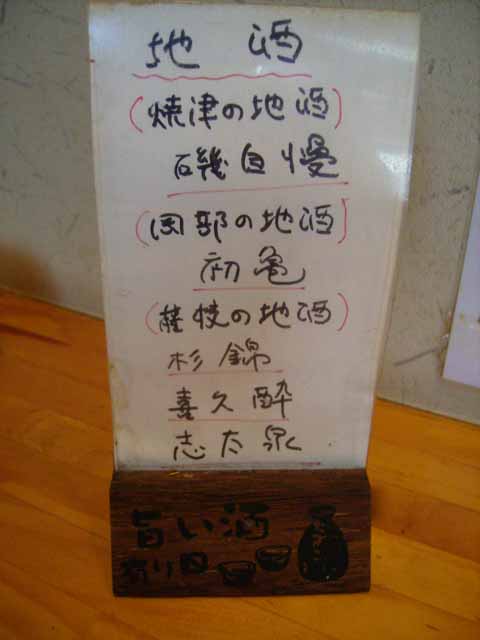 地酒
(焼津の地酒)
磯自慢
(岡部の地酒)
初亀
(藤枝の地酒)
杉錦
喜久酔
志太泉
旨い酒
有り〼